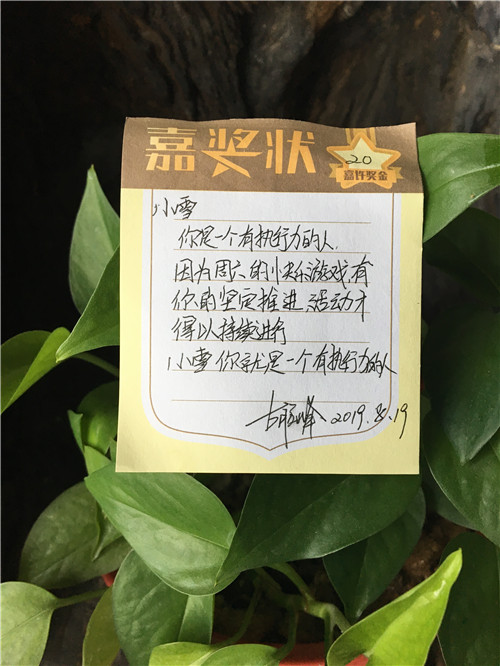 嘉奖状
20
嘉许奖金
小雪
你是一个有执行力的人.
因为周六的快乐游戏,有
你的坚定推进,活动才
得以持续进行
小雪你就是一个有执行力的人
2019.8.19